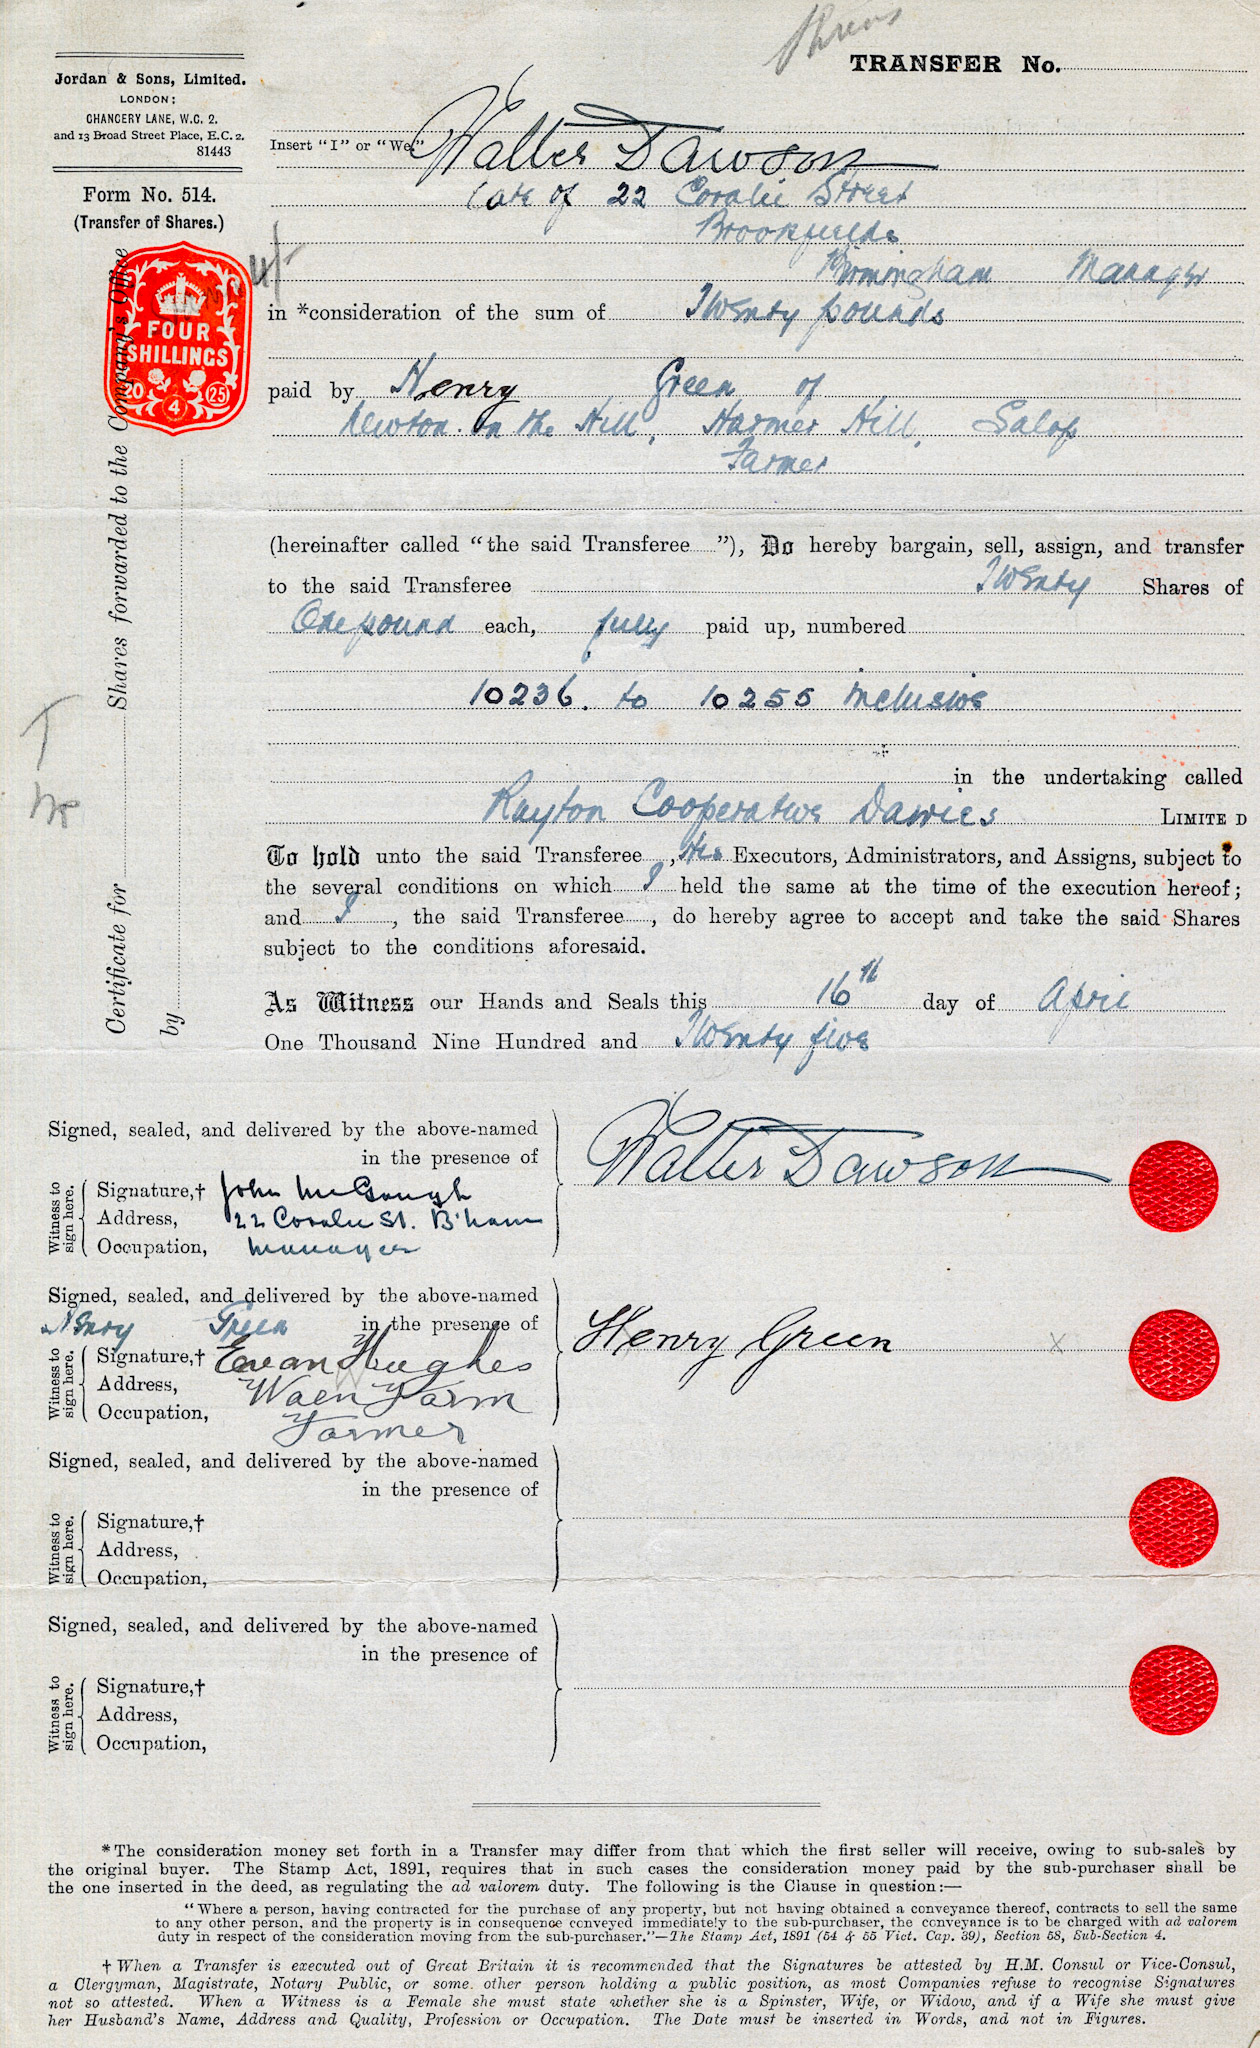 Shrews
TRANSFER No.
Jordan & Sons, Limited.
LONDON:
CHANCERY LANE, W.C. 2.
and 13 Broad Street Place, E.C. 2.
81443
Form No. 514.
(Transfer of Shares.)
FOUR
SHILLINGS
20 4 25
4/-
Certificate for Shares forwarded to the Company's Office
by
Insert "I" or "We" Walter Dawson
late of 22 Coralie Street
Brookfields
Birmingham Manager
in *consideration of the sum of Twenty pounds
paid by Henry Green of
Newton on the Hill, Harmer Hill, Salop
Farmer
(hereinafter called "the said Transferee "), Do hereby bargain, sell, assign, and transfer
to the said Transferee Twenty Shares of
One pound each, fully paid up, numbered
10236. to 10255 inclusive
in the undertaking called
Ruyton Cooperative Dairies LIMITED
To hold unto the said Transferee , His Executors, Administrators, and Assigns, subject to
the several conditions on which I held the same at the time of the execution hereof;
and I , the said Transferee , do hereby agree to accept and take the said Shares
subject to the conditions aforesaid.
As Witness our Hands and Seals this 16th day of April
One Thousand Nine Hundred and Twenty five
Signed, sealed, and delivered by the above-named
in the presence of
Walter Dawson
Witness to sign here.
Signature,† John McGough
Address, 22 Coralie St. B'ham
Occupation, Manager
Signed, sealed, and delivered by the above-named
Henry Green in the presence of
Henry Green X
Witness to sign here.
Signature,† Evan Hughes
Address, Waen Farm
Occupation, Farmer
Signed, sealed, and delivered by the above-named
in the presence of
Witness to sign here.
Signature,†
Address,
Occupation,
Signed, sealed, and delivered by the above-named
in the presence of
Witness to sign here.
Signature,†
Address,
Occupation,
*The consideration money set forth in a Transfer may differ from that which the first seller will receive, owing to sub-sales by
the original buyer. The Stamp Act, 1891, requires that in such cases the consideration money paid by the sub-purchaser shall be
the one inserted in the deed, as regulating the ad valorem duty. The following is the Clause in question:—
"Where a person, having contracted for the purchase of any property, but not having obtained a conveyance thereof, contracts to sell the same
to any other person, and the property is in consequence conveyed immediately to the sub-purchaser, the conveyance is to be charged with ad valorem
duty in respect of the consideration moving from the sub-purchaser."—The Stamp Act, 1891 (54 & 55 Vict. Cap. 39), Section 58, Sub-Section 4.
† When a Transfer is executed out of Great Britain it is recommended that the Signatures be attested by H.M. Consul or Vice-Consul,
a Clergyman, Magistrate, Notary Public, or some other person holding a public position, as most Companies refuse to recognise Signatures
not so attested. When a Witness is a Female she must state whether she is a Spinster, Wife, or Widow, and if a Wife she must give
her Husband's Name, Address and Quality, Profession or Occupation. The Date must be inserted in Words, and not in Figures.